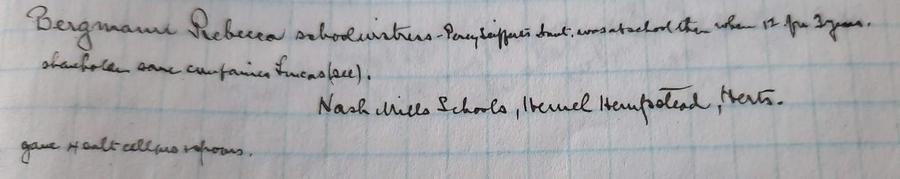 Bergmann Rebecca schoolmistress - Percy Seifferts Aunt. was at school then when 12 for 3 years.
shareholder same companies Lucas (see).
Nash Mills Schools, Hemel Hempstead, Herts.
gave